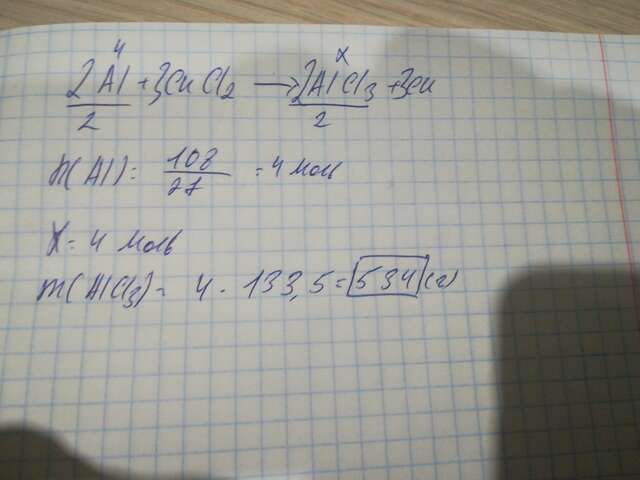 4 x
2Al + 3CuCl2 → 2AlCl3 + 3Cu
2 2
n(Al) = 108/27 = 4 моль
X = 4 моль
m(AlCl3) = 4 · 133,5 = 534 (г)